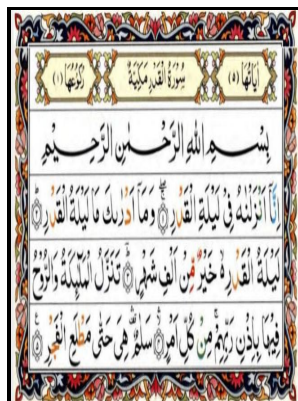 اٰيَاتُهَا (۵) سُوْرَةُ الْقَدْرِ مَكِّيَّةٌ رُكُوْعُهَا (۱)
بِسْمِ اللهِ الرَّحْمٰنِ الرَّحِيْمِ
اِنَّاۤ اَنْزَلْنٰهُ فِیْ لَيْلَةِ الْقَدْرِ ۝ وَمَاۤ اَدْرٰىكَ مَا لَيْلَةُ الْقَدْرِ ۝
لَيْلَةُ الْقَدْرِ ۙ خَيْرٌ مِّنْ اَلْفِ شَهْرٍ ۝ تَنَزَّلُ الْمَلٰٓئِكَةُ وَالرُّوْحُ
فِيْهَا بِاِذْنِ رَبِّهِمْ ۚ مِنْ كُلِّ اَمْرٍ ۝ سَلٰمٌ ۛ هِیَ حَتّٰى مَطْلَعِ الْفَجْرِ ۝